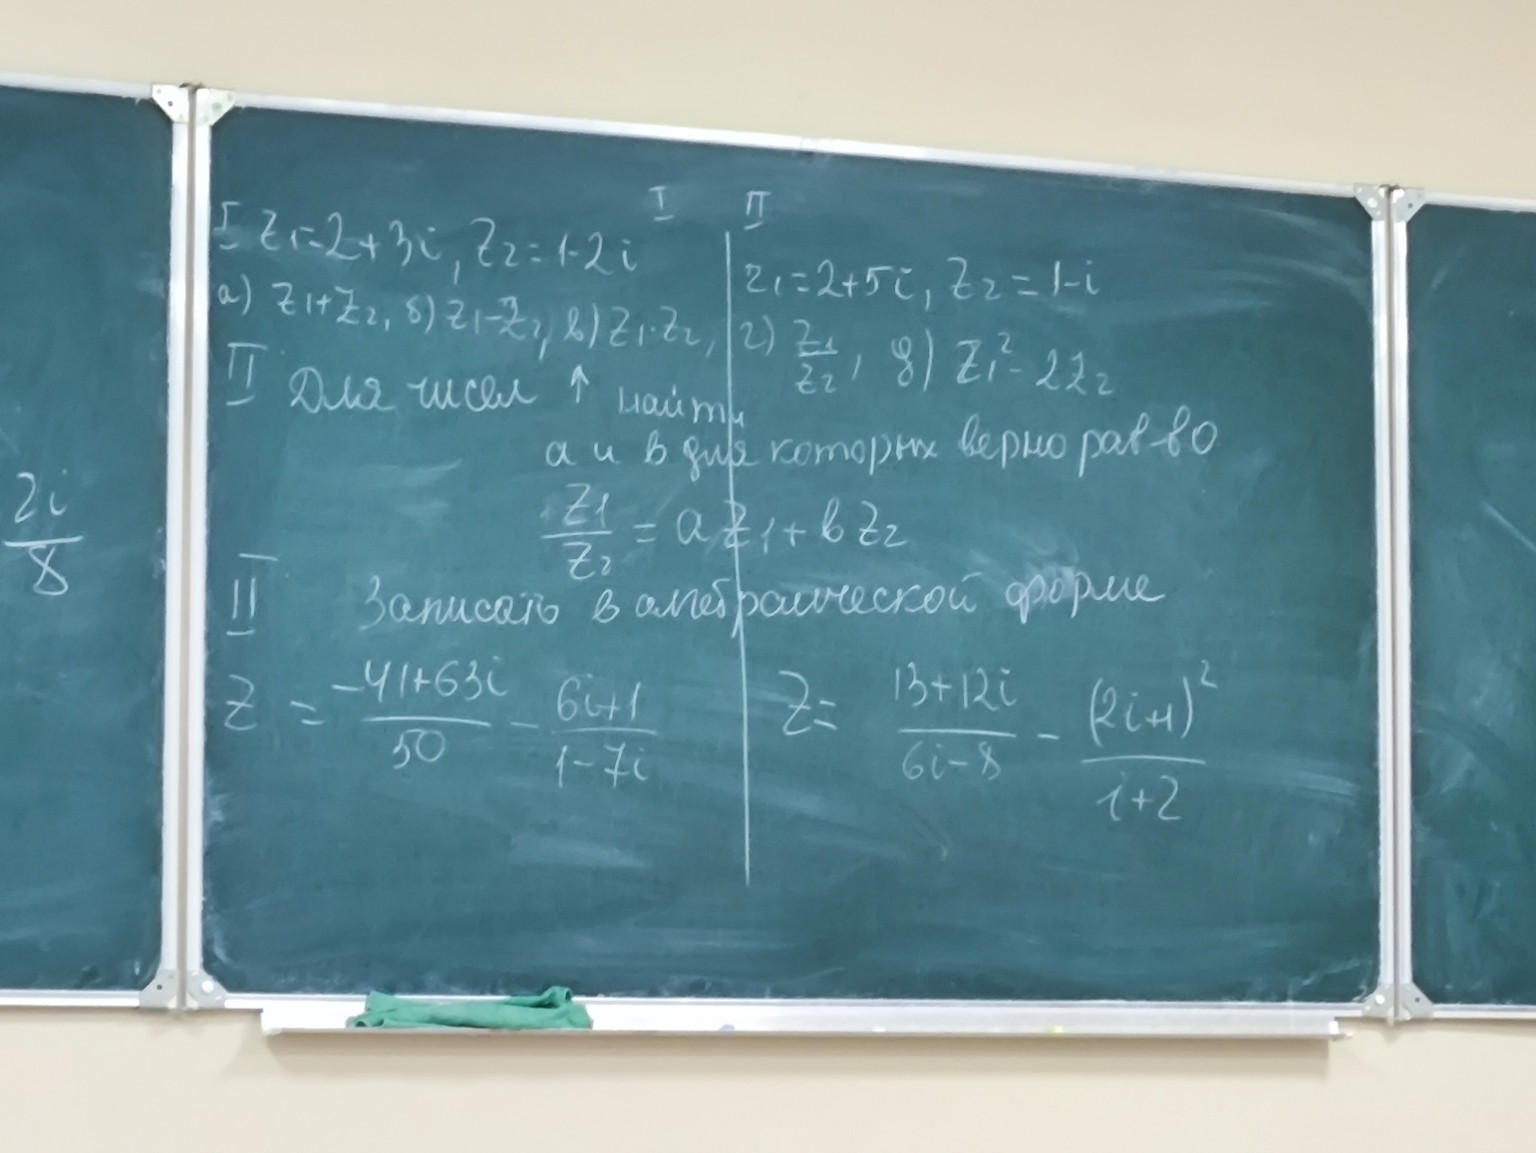 I II
I z₁=2+3i, z₂=1-2i
z₁=2+5i, z₂=1-i
а) z₁+z₂, б) z₁-z₂, в) z₁·z₂, г) z₁/z₂, д) z₁²-2z₂
II Для чисел ↑ найти
а и в для которых верно рав-во
z₁/z₂ = a z₁ + b z₂
III Записать в алгебраической форме
z = (-41+63i)/50 - (6i+1)/(1-7i)
z = (13+12i)/(6i-8) - (2i+1)²/(i+2)
2i/8